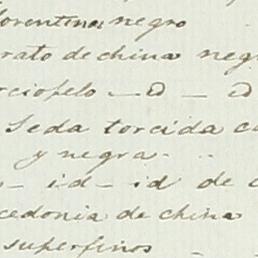 lorentina negro
rato de china neg
rciopelo — D — D
Seda torcida c
y negra.
- id - id de c
cedonia de china
superfinos